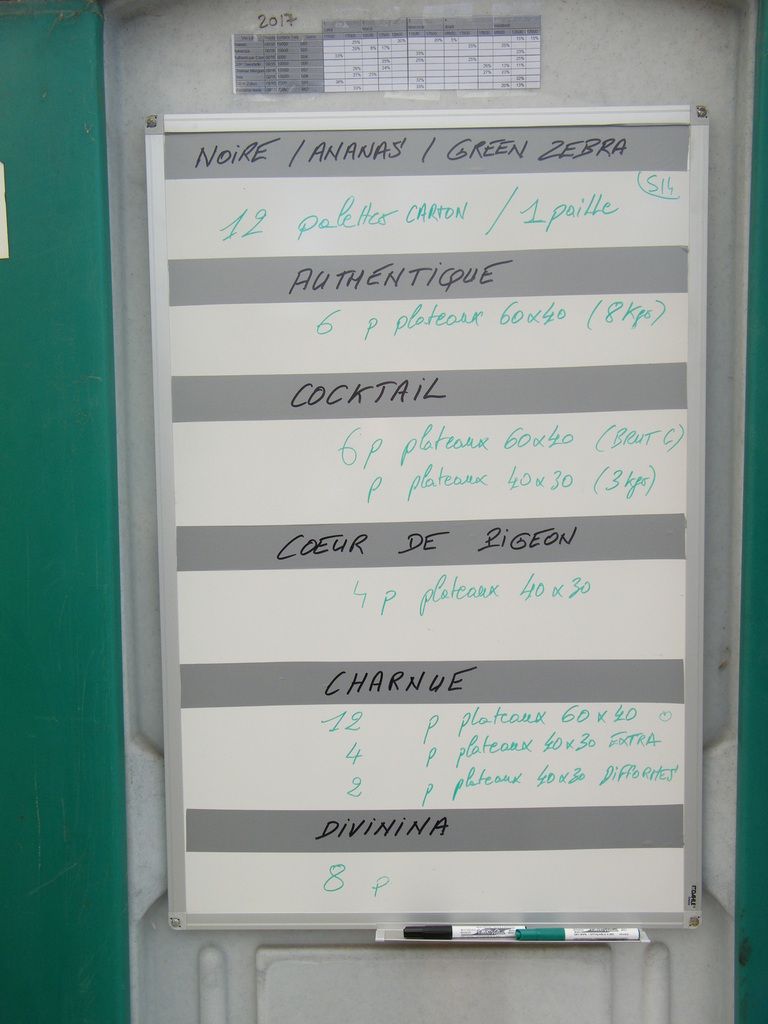 2017
NOIRE / ANANAS / GREEN ZEBRA
S14
12 palettes CARTON / 1 paille
AUTHENTIQUE
6 p plateaux 60x40 (8 Kgs)
COCKTAIL
6 p plateaux 60x40 (BRUT C)
p plateaux 40x30 (3 kgs)
COEUR DE PIGEON
4 p plateaux 40x30
CHARNUE
12 p plateaux 60x40
4 p plateaux 40x30 EXTRA
2 p plateaux 40x30 DIFFORMES
DIVININA
8 p